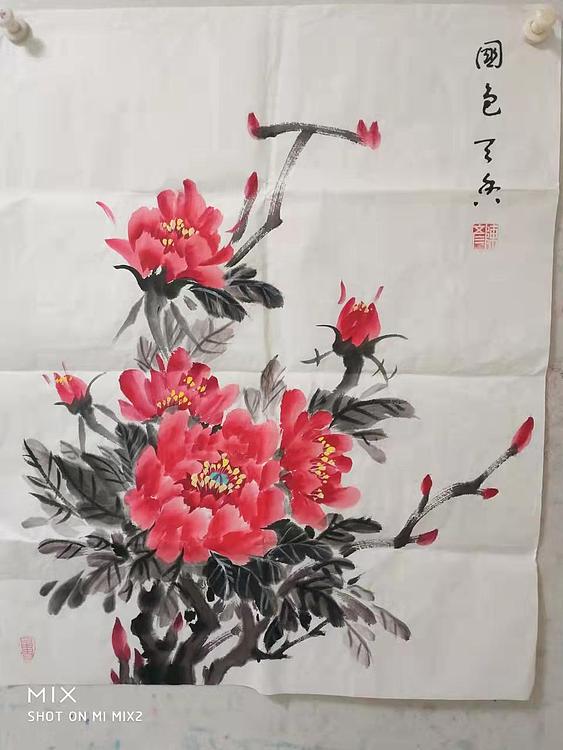 國色天香
MIX
SHOT ON MI MIX2